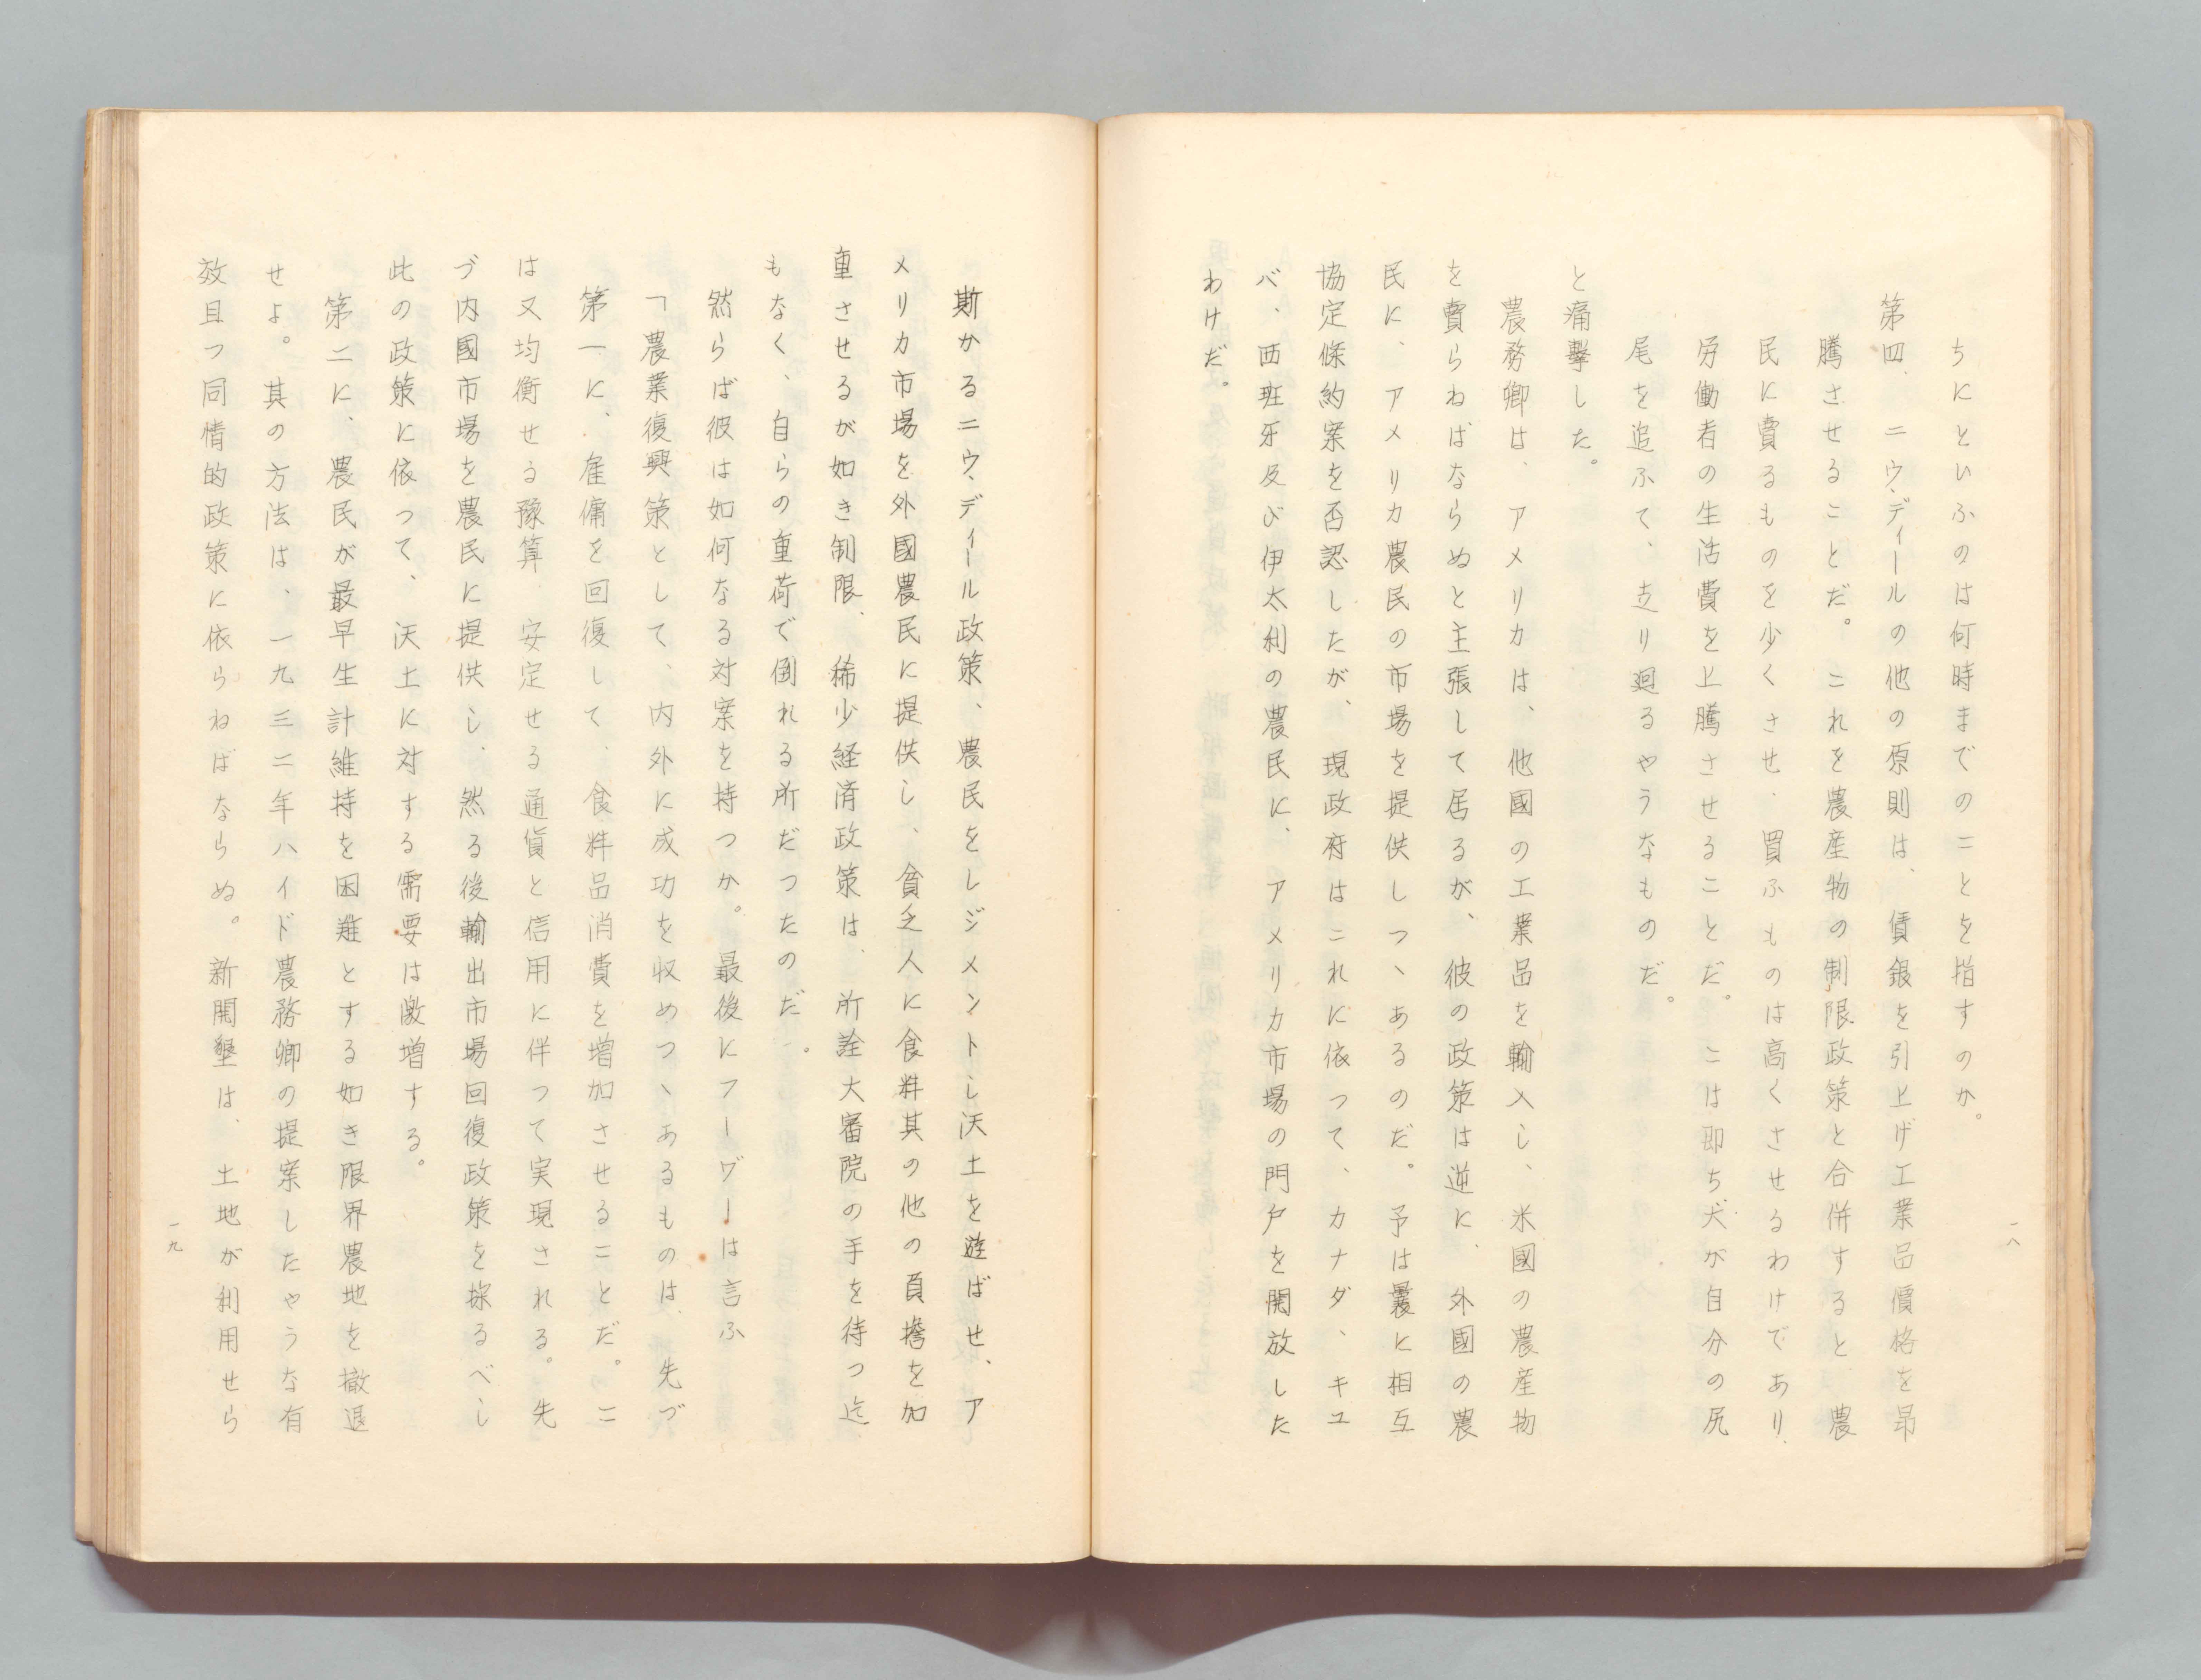 ちにといふのは何時までのことを指すのか。
第四、ニウ、ディールの他の原則は、賃銀を引上げ工業品價格を昂
騰させることだ。これを農産物の制限政策と合併すると、農
民に賣るものを少くさせ、買ふものは高くさせるわけであり、
労働者の生活費を上騰させることだ。こは即ち犬が自分の尻
尾を追ふて、走り廻るやうなものだ。
と痛撃した。
農務卿は、アメリカは、他國の工業品を輸入し、米國の農産物
を賣らねばならぬと主張して居るが、彼の政策は逆に、外國の農
民に、アメリカ農民の市場を提供しつヽあるのだ。予は曩に相互
協定條約案を否認したが、現政府はこれに依って、カナダ、キユ
バ、西班牙及び伊太利の農民に、アメリカ市場の門戸を開放した
わけだ。
一八
斯かるニウ、ディール政策、農民をレジメントし沃土を遊ばせ、ア
メリカ市場を外國農民に提供し、貧乏人に食料其の他の負擔を加
重させるが如き制限、稀少経済政策は、所詮大審院の手を待つ迄
もなく、自らの重荷で倒れる所だつたのだ。
然らば彼は如何なる対案を持つか。最後にフーヴーは言ふ
「農業復興策として、内外に成功を収めつヽあるものは、先づ
第一に、雇傭を回復して、食料品消費を増加させることだ。こ
は又均衡せる豫算、安定せる通貨と信用に伴つて実現される。先
づ内國市場を農民に提供し、然る後輸出市場回復政策を採るべし
此の政策に依って、沃土に対する需要は激増する。
第二に、農民が最早生計維持を困難とする如き限界農地を撤退
せよ。其の方法は、一九三二年ハイド農務卿の提案したやうな有
效且つ同情的政策に依らねばならぬ。新開墾は、土地が利用せら
一九